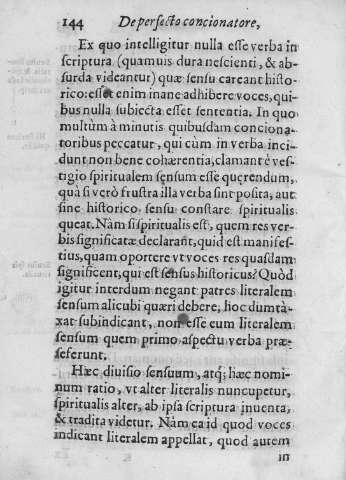 144 De perfecto concionatore,
Ex quo intelligitur nulla esse verba in
scriptura (quamuis dura nescienti, & ab-
surda videantur) quæ sensu careant histo-
rico: esset enim inane adhibere voces, qui-
bus nulla subiecta esset sententia. In quo
multùm à minutis quibusdam conciona-
toribus peccatur, qui cùm in verba inci-
dunt non bene cohærentia, clamant è ves-
tigio spiritualem sensum esse querendum,
quà si verò frustra illa verba sint posita, aut
sine historico sensu constare spiritualis
queat. Nàm si spiritualis est, quem res ver-
bis significatæ declarãt, quid est manifes-
tius, quam oportere vt voces res quasdam
significent, qui est sensus historicus? Quòd
igitur interdum negant patres literalem
sensum alicubi quæri debere, hoc dumtà-
xat subindicant, non esse eum literalem
sensum quem primo aspectu verba præ-
seferunt.
Hæc diuisio sensuum, atq; hæc nomi-
num ratio, vt alter literalis nuncupetur,
spiritualis alter, ab ipsa scriptura inuenta,
& tradita videtur. Nàm ea id quod voces
indicant literalem appellat, quod autem
in